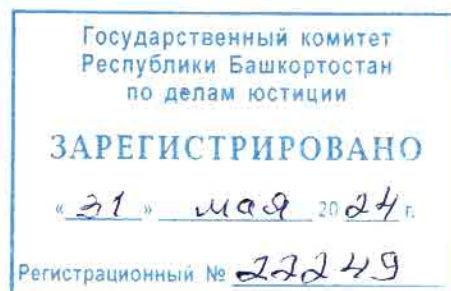 Государственный комитет
Республики Башкортостан
по делам юстиции
ЗАРЕГИСТРИРОВАНО
« 31 » мая 20 24 г.
Регистрационный № 22249